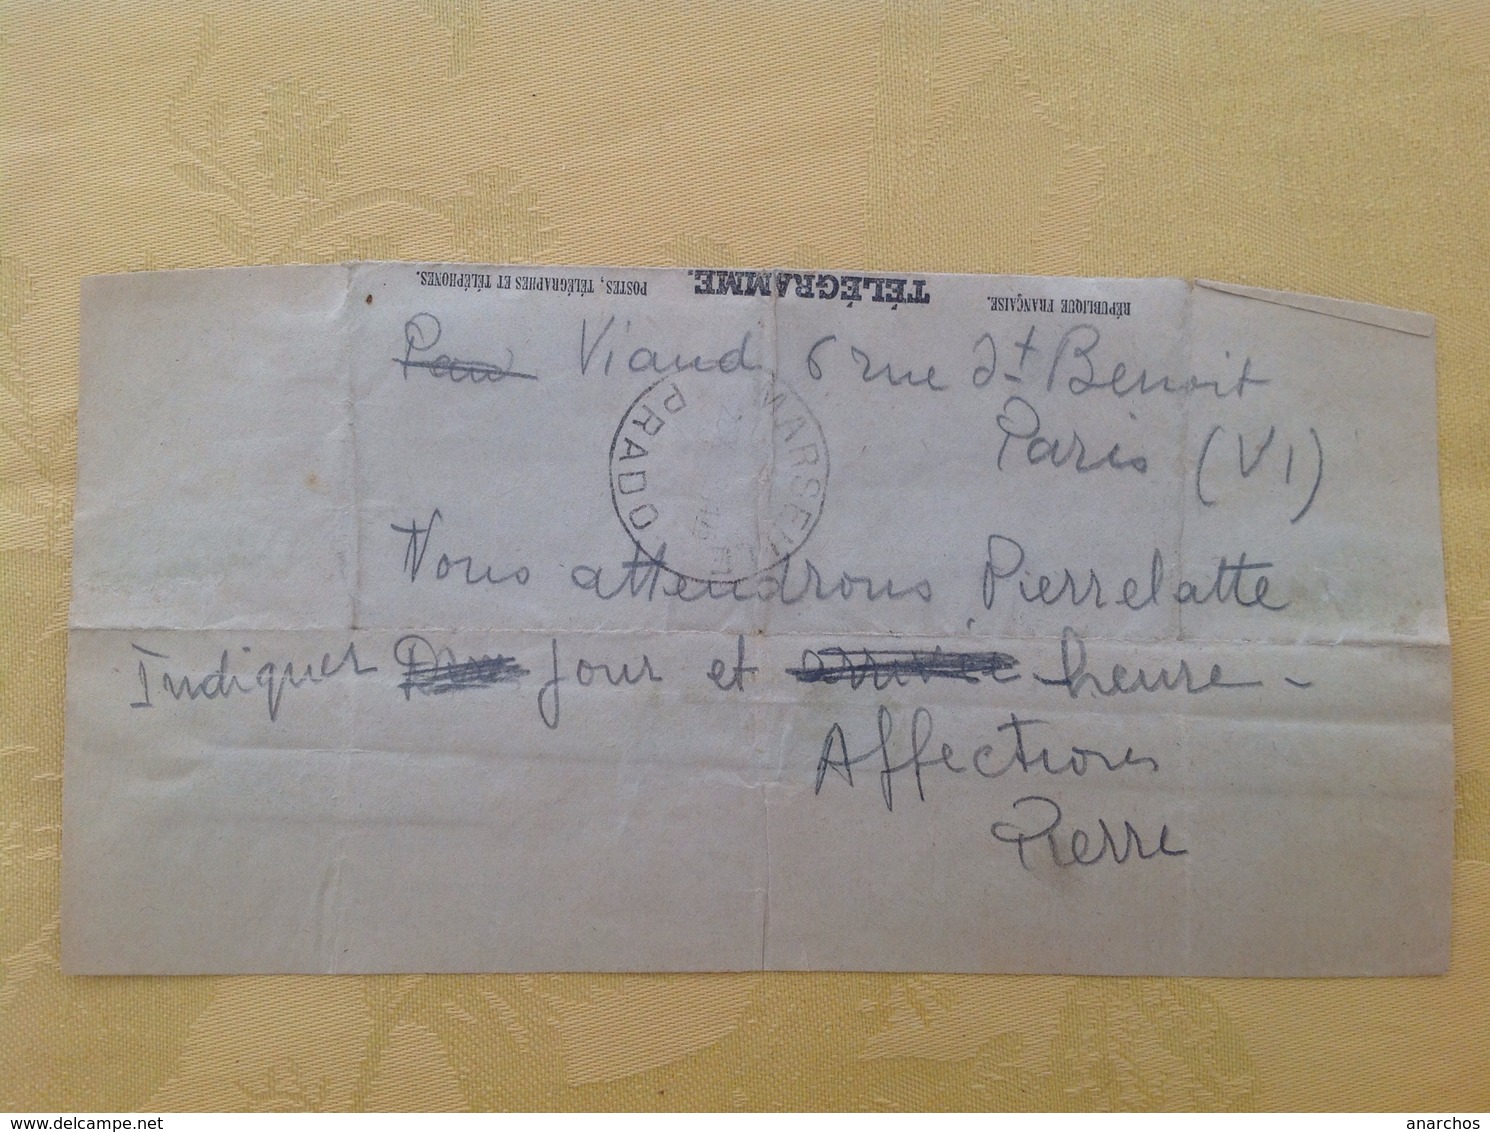 RÉPUBLIQUE FRANÇAISE. TÉLÉGRAMME. POSTES, TÉLÉGRAPHES ET TÉLÉPHONES.
Viaud 6 rue St Benoit
Paris (VI)
MARSEILLE PRADO
Vous attendrons Pierrelatte
Indiquer jour et heure -
Affections
Pierre
www.delcampe.net
anarchos